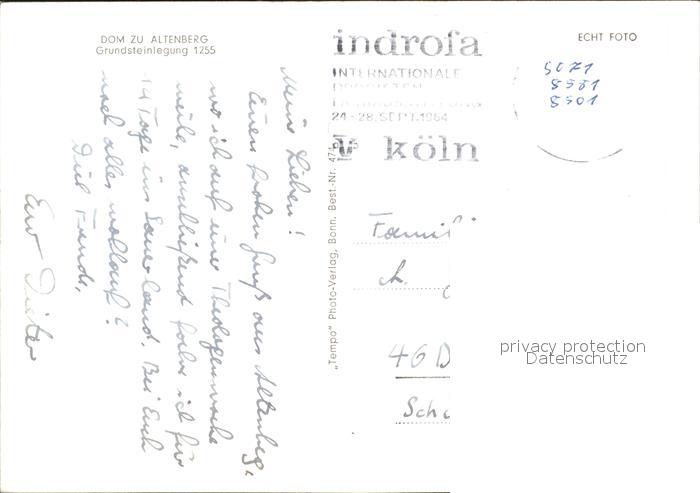 DOM ZU ALTENBERG
Grundsteinlegung 1255
ECHT FOTO
indrofa
INTERNATIONALE
24.-28. SEPT. 1964
köln
5071
8581
8501
Meine Lieben!
Einen frohen Gruß aus Altenberg,
wo ich auf einer Theologenwoche
weile, anschließend fahre ich für
14 Tage ins Sauerland. Bei Euch
noch alles wohlauf?
Viel Freude,
Euer Dieter
"Tempo" Photo-Verlag, Bonn. Best.-Nr.
Famil
A.
46 D
privacy protection
Datenschutz